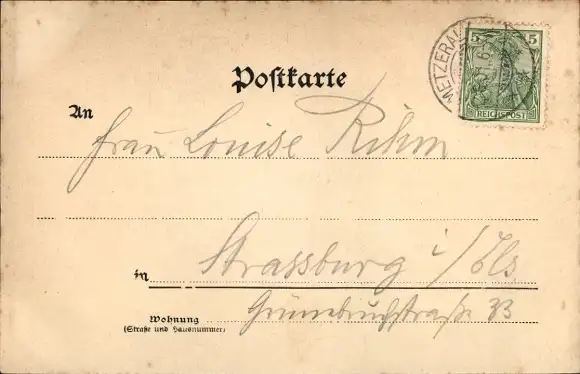 5 5
REICHSPOST
METZERAL
Postkarte
An
Frau Louise Rihm
in Strassburg i/Els
Wohnung
(Straße und Hausnummer)
33